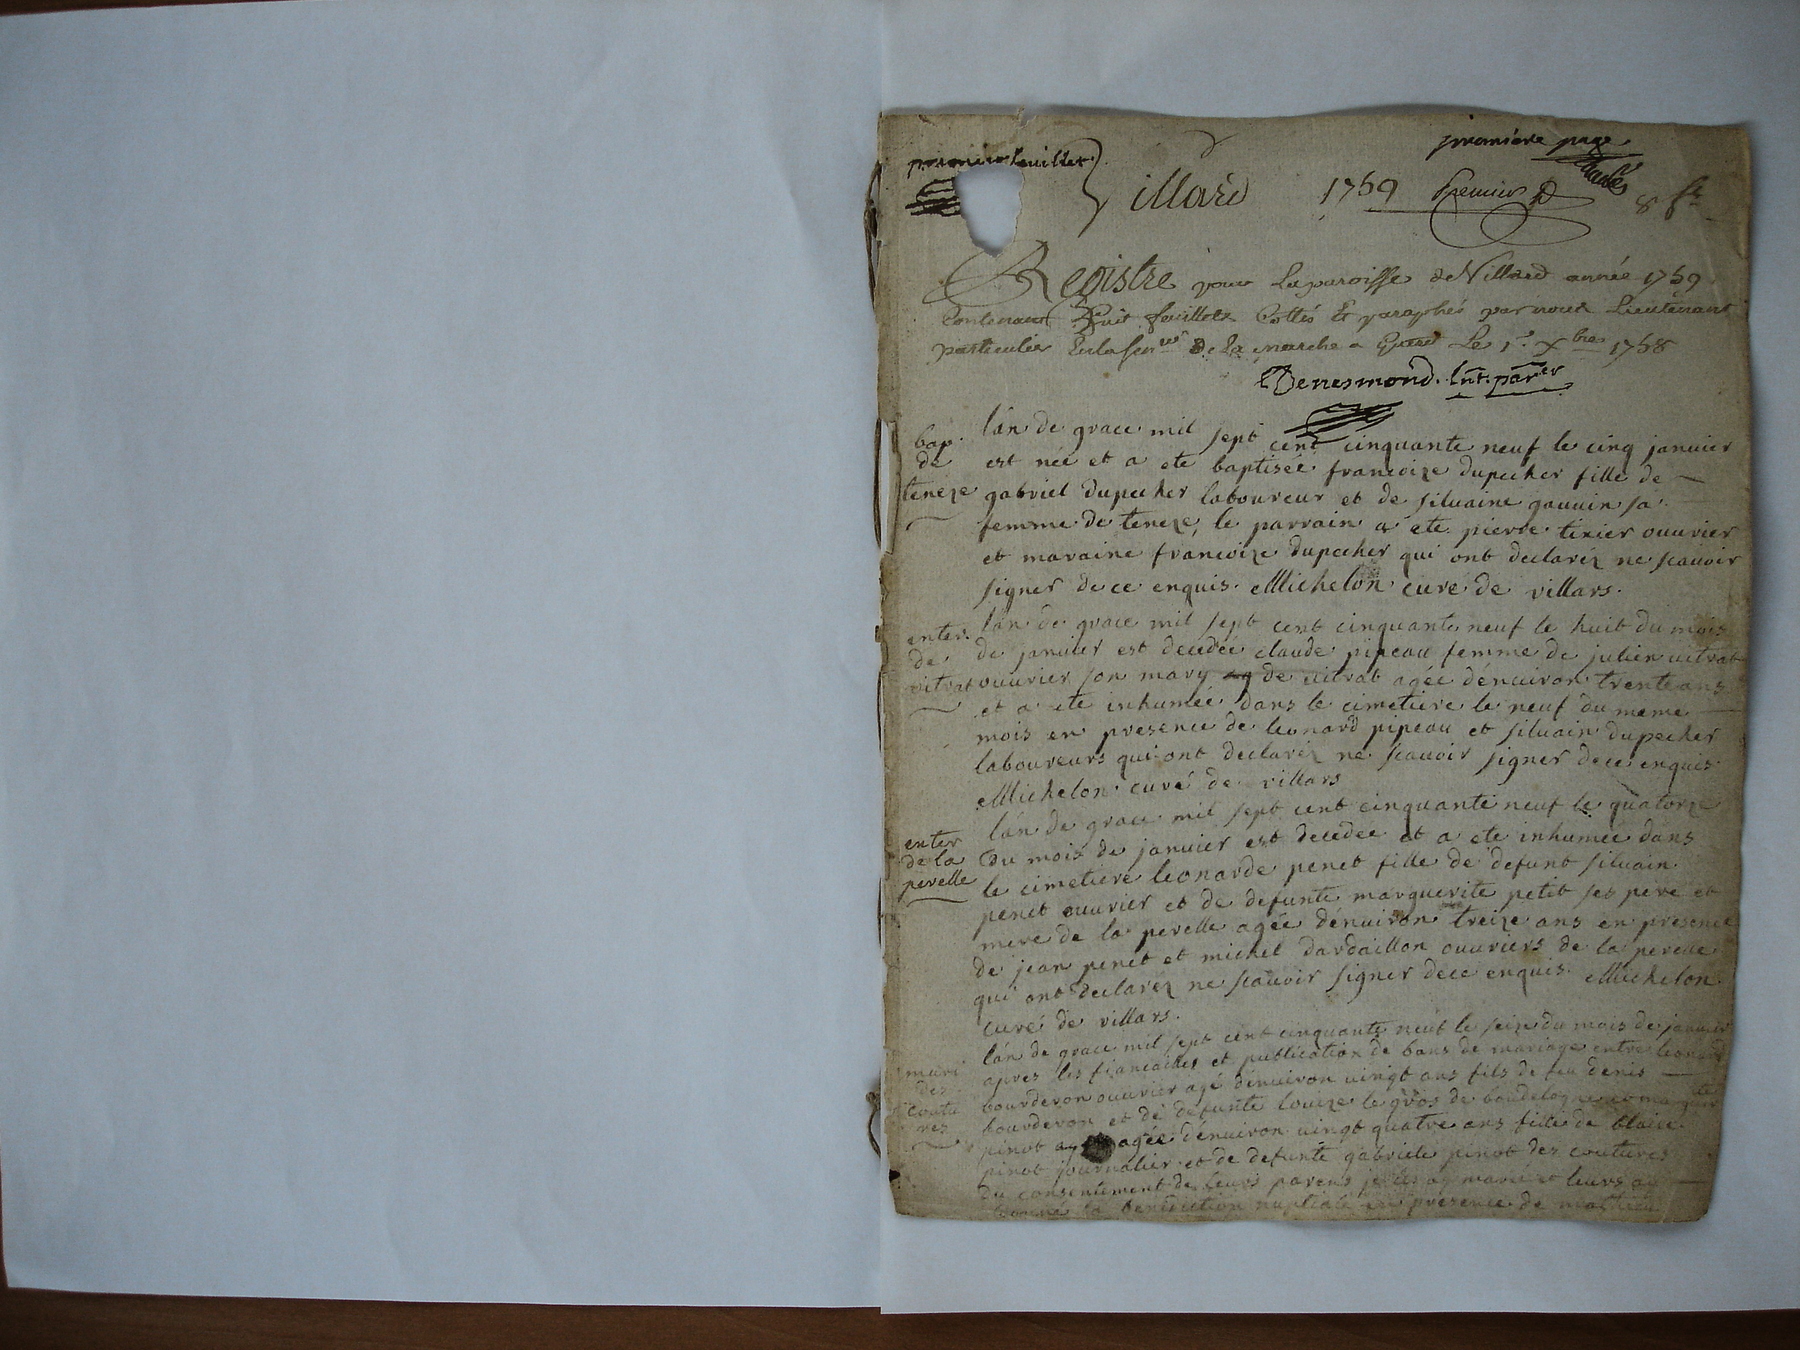 premier feuillet
première page
Villard 1759 Premier
8 f^r
Registre pour La paroisse de Villard année 1759
Contenant huit feuillets Cottés Et paraphés par nous Lieutenant
particulier En la sen^ée De La marche a Gueret Le 1^er X^bre 1758
Denesmond. Lnt. par^er
bap.
de
teneze
lan de grace mil sept cent cinquante neuf le cinq janvier
est née et a ete baptisée francoize dupecher fille de
gabriel dupecher laboureur et de silvaine gauvin sa
femme de teneze, le parrain a ete pierre tixier ouvrier
et maraine francoize dupecher qui ont declaréz ne scavoir
signer de ce enquis. Michelon curé de villars.
enter.
de
vitrat
lan de grace mil sept cent cinquante neuf le huit du mois
de janvier est decedée claude pipeau femme de julien vitrat
ouvrier son mary de vitrat agée dénviron trente ans
et a ete inhumée dans le cimetiere le neuf du meme
mois en presence de leonard pipeau et silvain dupecher
laboureurs qui ont declaréz ne scavoir signer de ce enquis
Michelon curé de villars
enter
de la
perelle
lan de grace mil sept cent cinquante neuf le quatorze
du mois de janvier est decedee et a ete inhumée dans
le cimetiere leonarde penet fille de defunt silvain
penet ouvrier et de defunte marguerite petit ses pere et
mere de la perelle agée dénviron treize ans en presence
de jean penet et michel dardaillon ouvriers de la perelle
qui ont declaréz ne scavoir signer de ce enquis. Michelon
curé de villars.
mari
des
coutu
res
lan de grace mil sept cent cinquante neuf le seize du mois de janvier
apres les fiancailles et publication de bans de mariage entre leonard
bourderon ouvrier agé dénviron vingt ans fils de feu denis
bourderon et de defunte louize le gros de boudelogne et marguerite
pinot agée dénviron vingt quatre ans fille de blaise
pinot journalier et de defunte gabriele pinot des coutures
du consentement de leurs parens je les ay marié et leurs ay
donné la benediction nuptiale en presence de mathieu